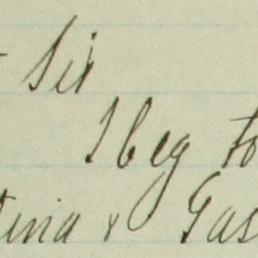 Sir
I beg to
tina & Gas